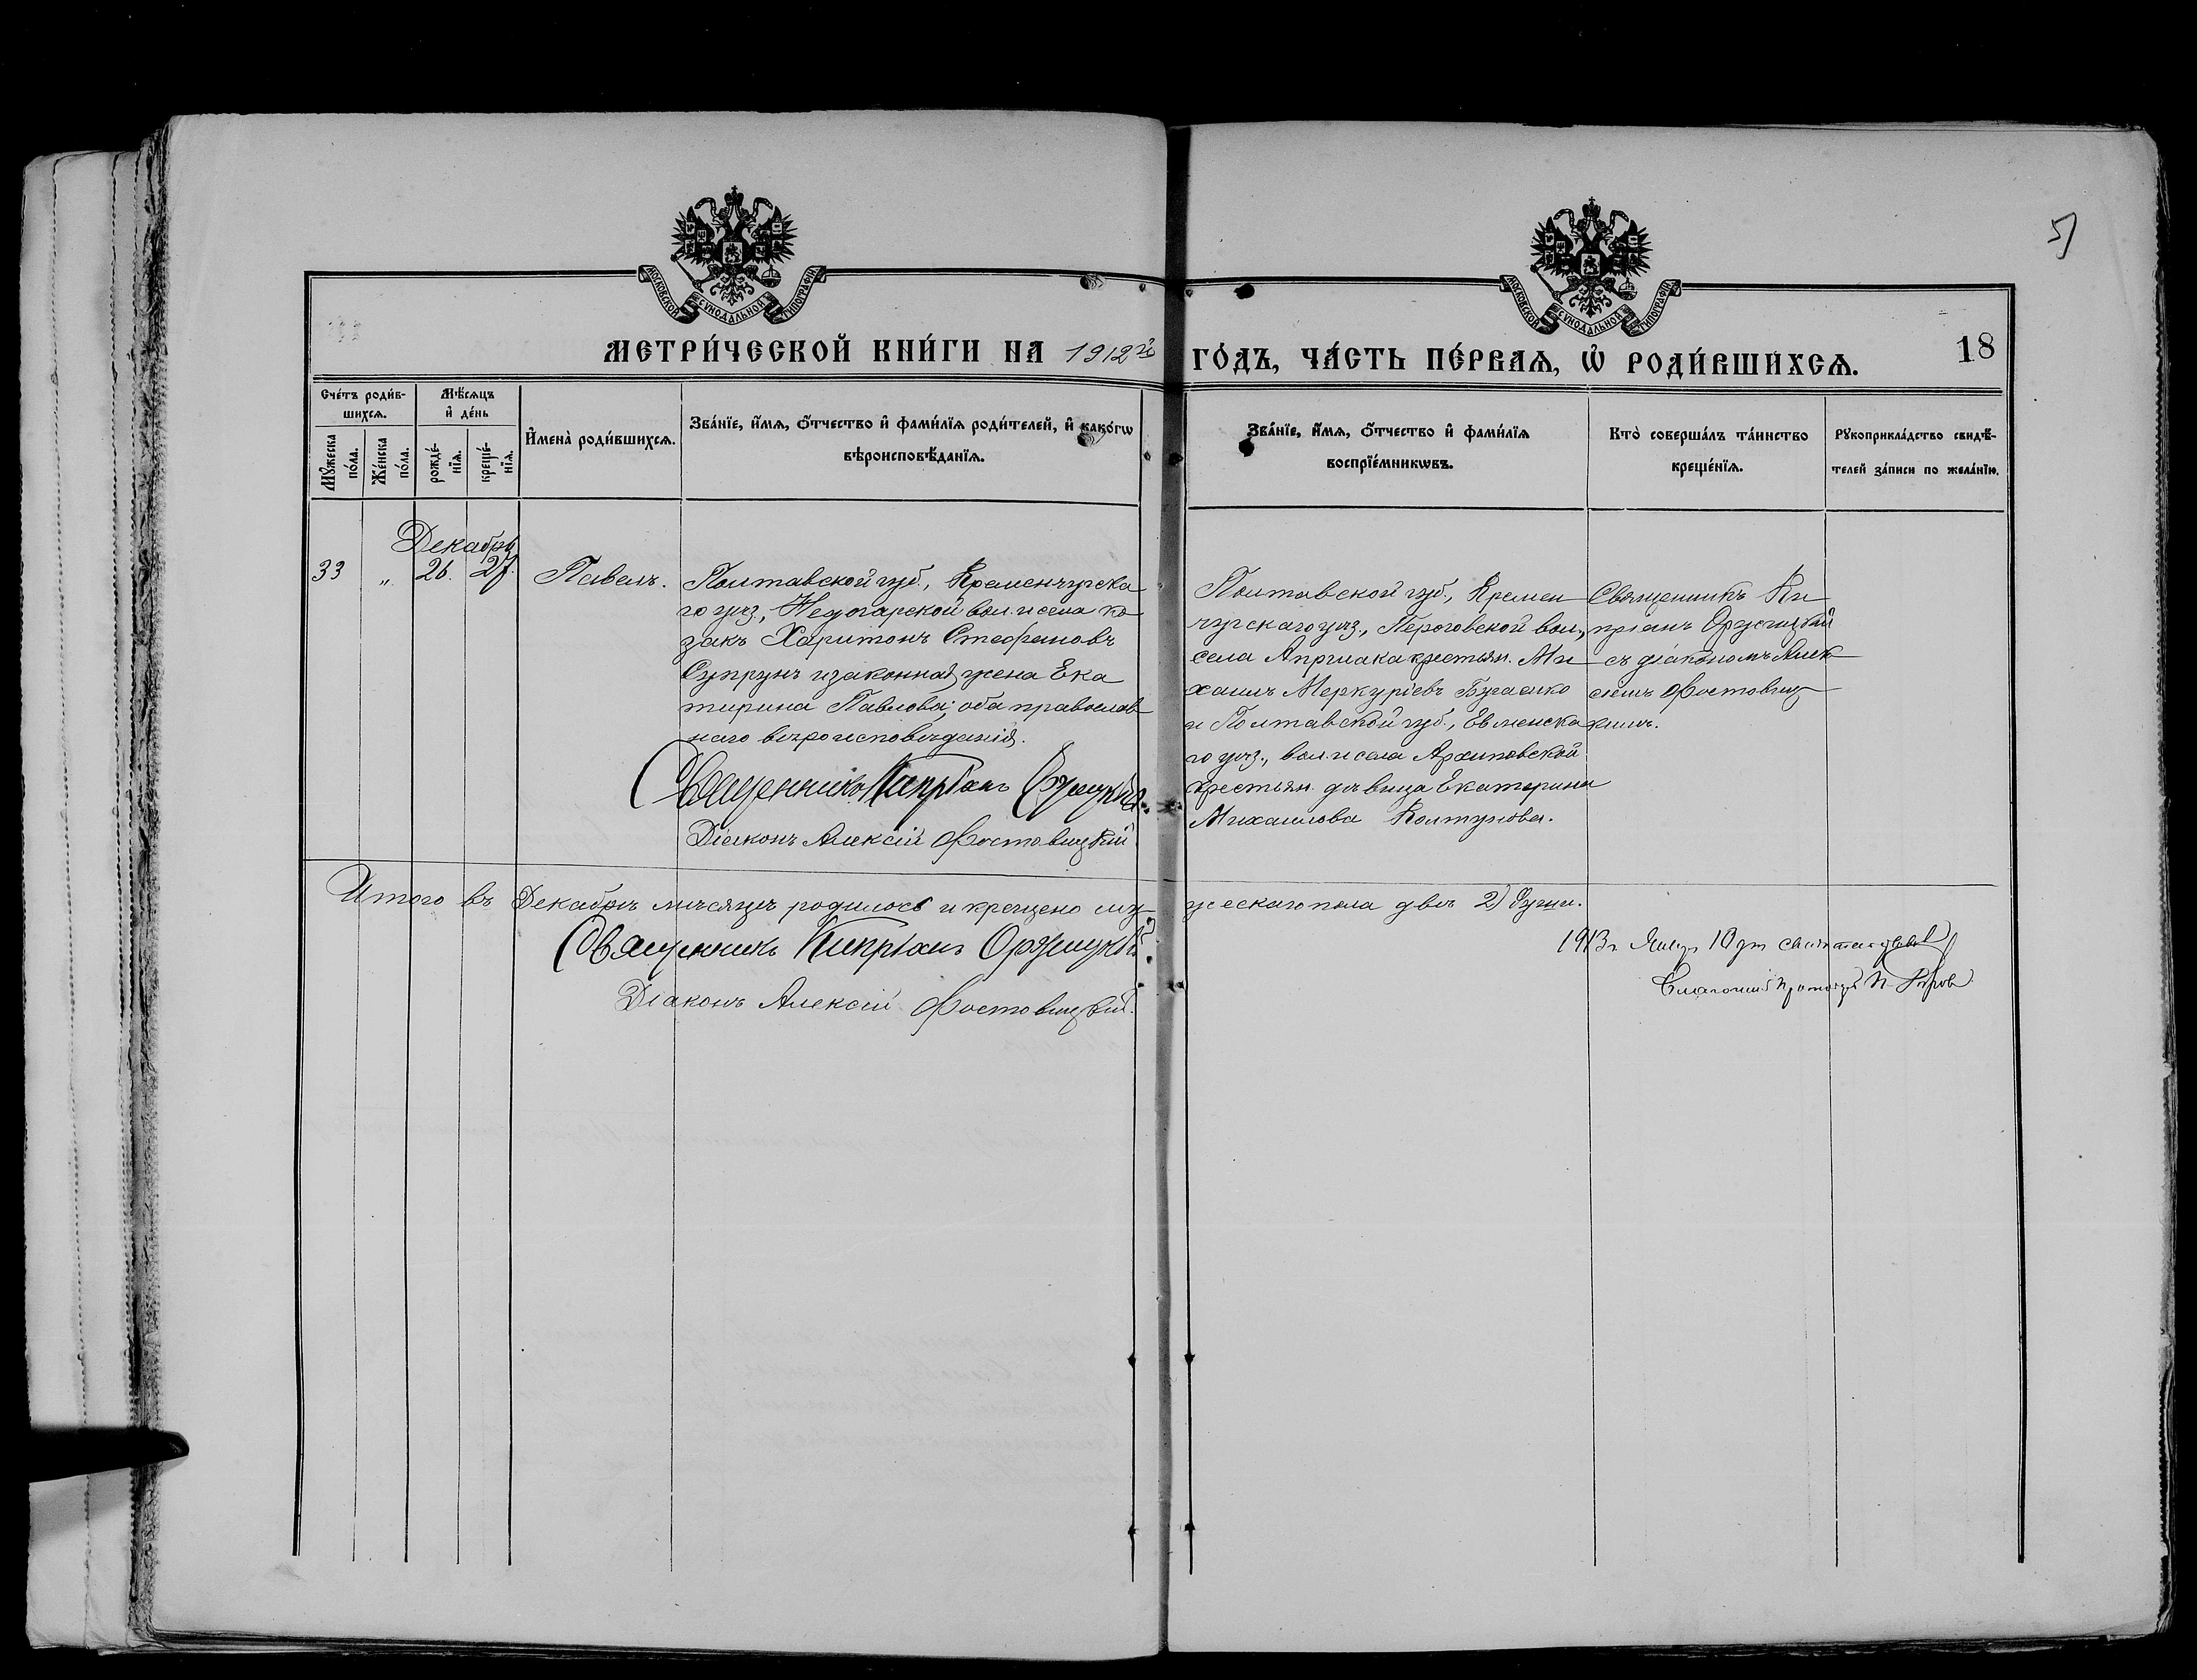 5
МОСКОВСКОЙ СѴНОДАЛЬНОЙ ТИПОГРАФІИ
МОСКОВСКОЙ СѴНОДАЛЬНОЙ ТИПОГРАФІИ
МЕТРИ́ЧЕСКОЙ КНИ́ГИ НА 1912й
ГО́ДЪ, ЧА́СТЬ ПЕ́РВАѦ, Ѽ РОДИ́ВШИХСѦ.
18
Сче́тъ роди́в-
шихсѧ.
Мꙋ́жеска
по́ла.
Же́нска
по́ла.
Мѣ́сѧцъ
и҆ де́нь
рожде́-
нїѧ.
креще́-
нїѧ.
И҆мена̀ роди́вшихсѧ.
Зва́нїе, и҆́мѧ, ѻ҆́тчество и҆ фами́лїѧ роди́телей, и҆ како́гѡ
вѣроисповѣ́данїѧ.
Зва́нїе, и҆́мѧ, ѻ҆́тчество и҆ фами́лїѧ
воспрїе́мникѡвъ.
Кто̀ соверша́лъ та́инство
креще́нїѧ.
Рꙋкоприкла́дство свидѣ́-
телей за́писи по жела́нїю.
Декабрь
33 " 26. 27. Павелъ.
Полтавской губ., Кременчугска
го уѣз., Недогарской вол. и села ко
закъ Харитонъ Стефановъ
Супрунъ и законная жена Ека
тирина Павлова; оба православ
наго вѣроисповѣданія.
Священникъ Кипріанъ Оржицкій
Діаконъ Алексій
Полтавской губ., Кремен
чугскаго уѣз., вол.,
села крестьян. Ми
хаилъ Меркуріевъ
и Полтавской губ.,
го уѣз., вол. и села
крестьян. дѣвица Екатерина
Михаилова Колтунова.
Священникъ Ки
пріанъ Оржицкій
съ діакономъ Алек
сіемъ
кимъ.
Итого въ Декабрѣ мѣсяцѣ родилось и крещено му
жескаго пола двѣ 2) души.
Священникъ Кипріанъ Оржицкій
Діаконъ Алексій
1913 г. 10 дня
Благочинный